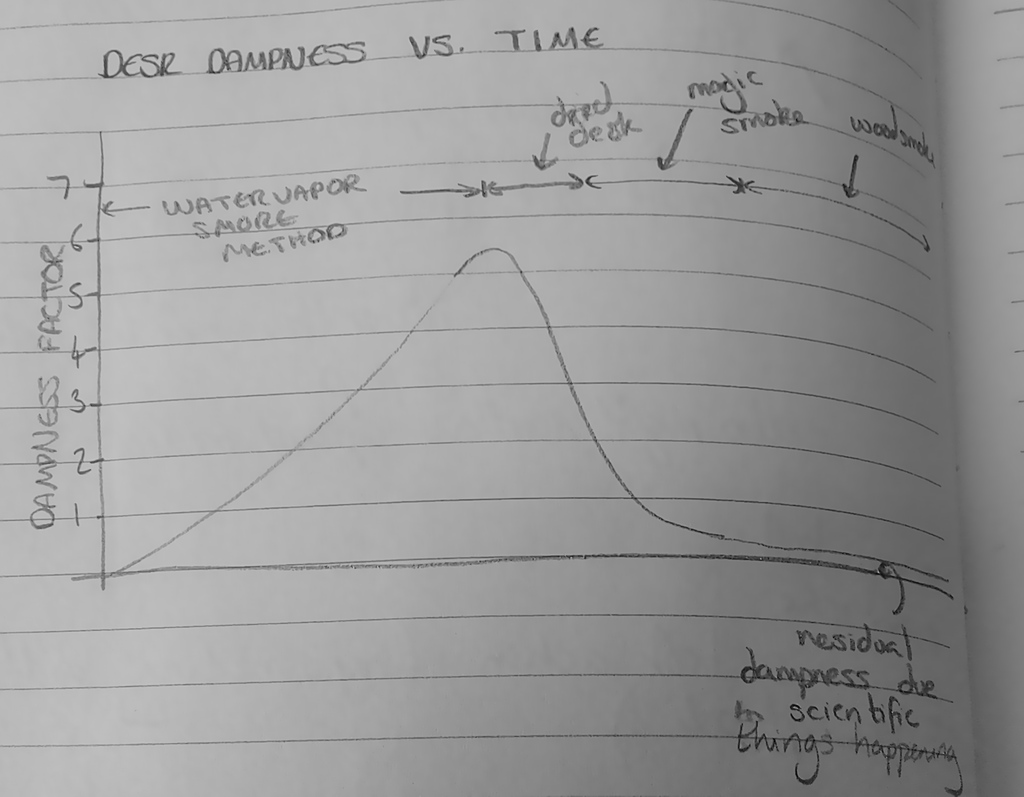 DESK DAMPNESS VS. TIME
magic
smoke
dead
desk
woodsmoke
7
WATER VAPOR
SMOKE
METHOD
6
5
4
3
2
1
DAMPNESS FACTOR
residual
dampness due
to scientific
things happening